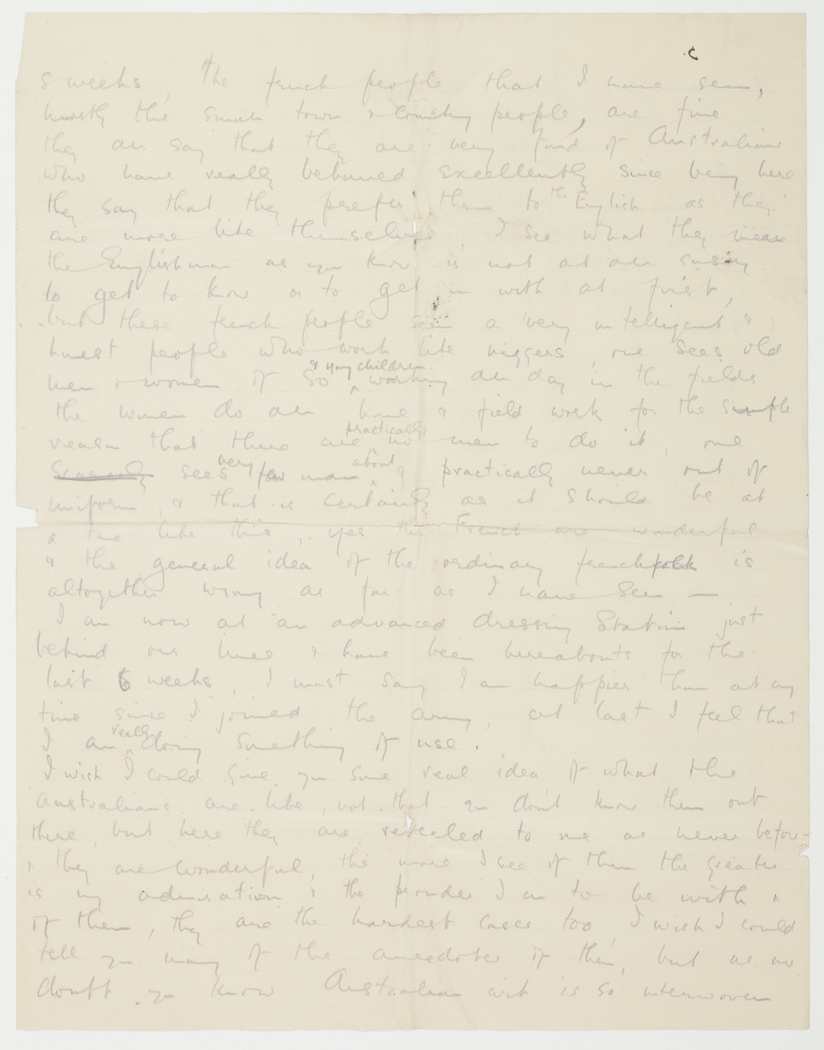 5 weeks, the french people that I have seen,
mostly the small town & country people, are fine
they all say that they are very fond of Australians
who have really behaved excellently since being here
they say that they prefer them to the English as they
are more like themselves, I see what they mean
the Englishman as you know is not at all easy
to get to know or to get on with at first,
but these french people seem a very intelligent &
honest people who work like niggers, one sees old
men & women of 80 & young children working all day in the fields
the women do all home & field work for the simple
reason that there are practically no men to do it, one
Scarcely sees very few men about & practically never out of
uniform, & that is certainly as it should be at
a time like this, yes the French are wonderful
& the general idea of the ordinary french folk is
altogether wrong as far as I have seen —
I am now at an advanced dressing Station just
behind our lines & have been hereabouts for the
last 6 weeks, I must say I am happier than at any
time since I joined the army, at last I feel that
I am really doing something of use.
I wish I could give you some real idea of what the
Australians are like, not that you don't know them out
there, but here they are revealed to me as never before
& they are wonderful, the more I see of them the greater
is my admiration & the prouder I am to be with &
of them, they are the hardest cases too, I wish I could
tell you many of the anecdotes of them, but as no
doubt you know Australian wit is so interwoven